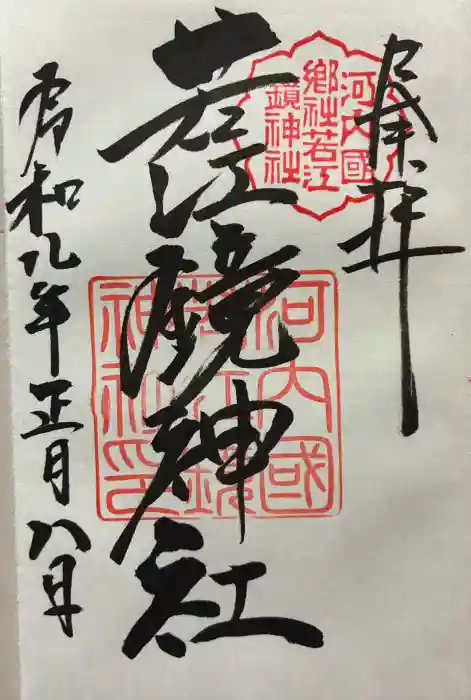 奉拝
河内國
郷社若江
鏡神社
若江鏡神社
河内國
若江鏡
神社印
令和九年正月八日